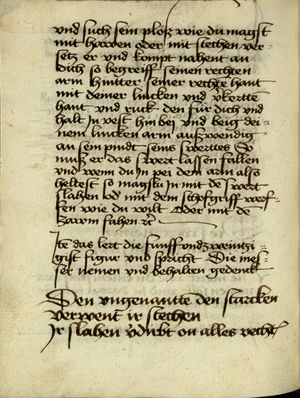 und such sein plöß wie du magst
mit hawen oder mit stechen ver=
setz er und kompt nahent an
dich so begreiff seinen rechten
arm hinitter seiner rechte hant
mit deiner lincken und vkertte
hant und ruck den für dich und
halt in vest hin bei und beig dei=
nem lincken arm außwendig
an sein pindt seins swerttes So
muß er das swert lassen fallen
und wenn du in pei dem arm also
heltest so magstu in mit de swert
slahen od mit dem schefgriff werf=
fen wie du wilt Oder mit de
zawm fahen etc
Ite das lert die funff undzweintzi=
gist figur und spricht Die mes=
ser nemen und behalten gedenck
Den ungenantte den starcken
Verwent ir stechen
Ir slahen vdirbt on alles vechtn